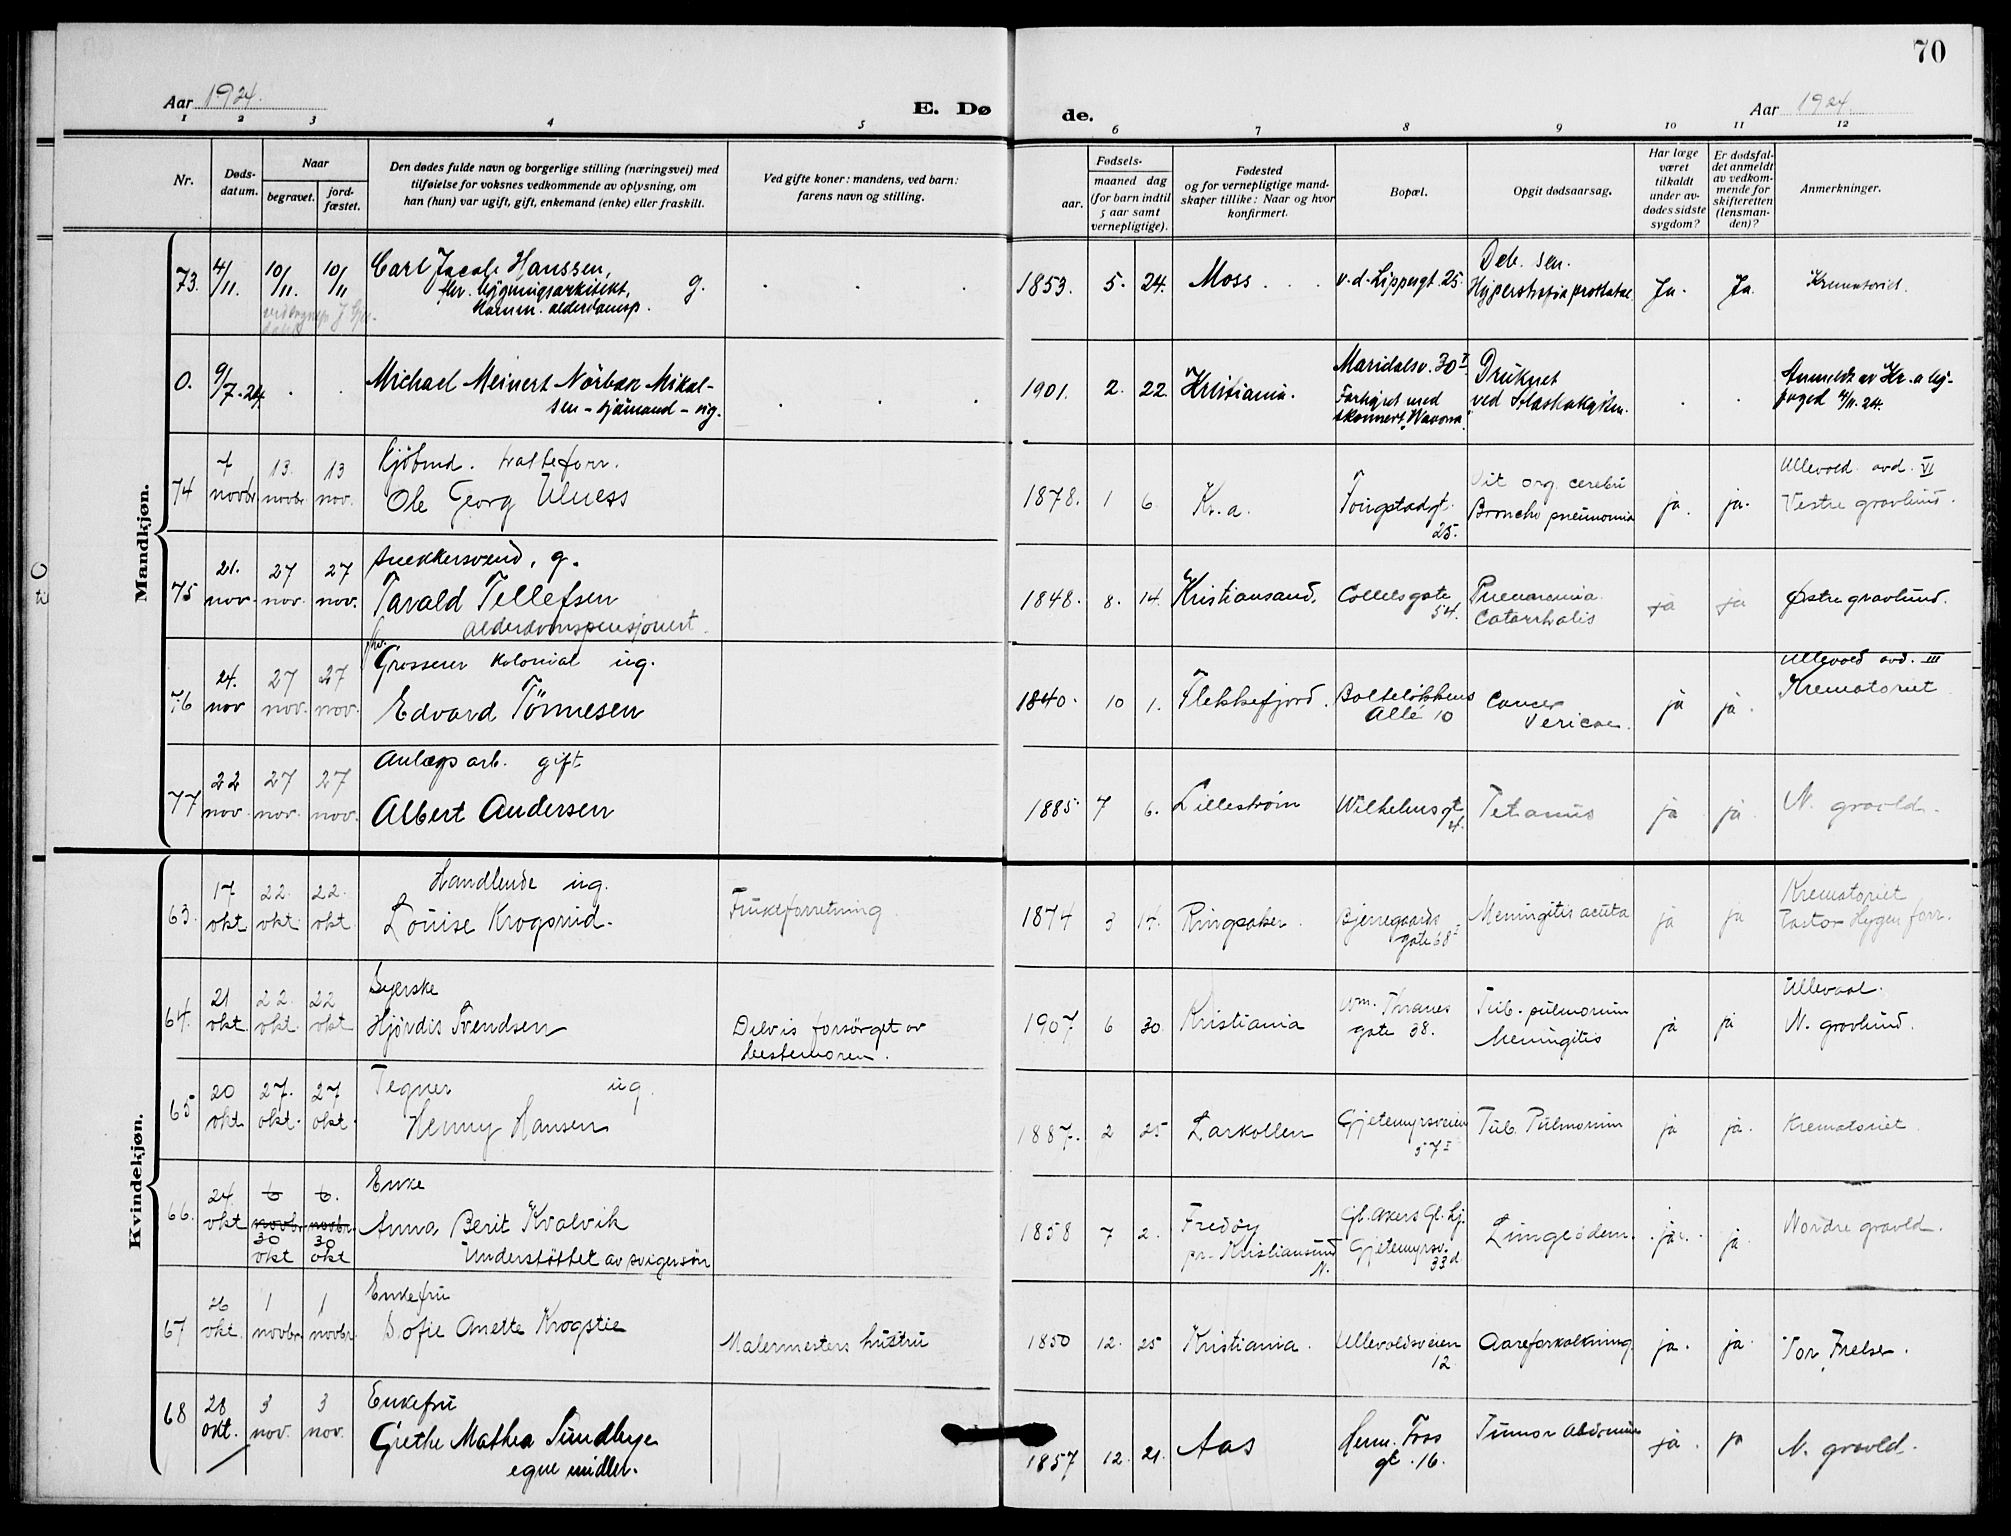 70
Aar 1924.
E. Dø
de.
Aar 1924.
1 2 3 4 5 6 7 8 9 10 11 12
Nr.
Døds-
datum.
Naar
begravet.
jord-
fæstet.
Den dødes fulde navn og borgerlige stilling (næringsvei) med
tilføielse for voksnes vedkommende av oplysning, om
han (hun) var ugift, gift, enkemand (enke) eller fraskilt.
Ved gifte koner: mandens, ved barn:
farens navn og stilling.
Fødsels-
aar.
maaned dag
(for barn indtil
5 aar samt
vernepligtige).
Fødested
og for vernepligtige mand-
skaper tillike: Naar og hvor
konfirmert.
Bopæl.
Opgit dødsaarsag.
Har læge
været
tilkaldt
under av-
dødes sidste
sygdom?
Er dødsfal-
det anmeldt
av vedkom-
mende for
skifteretten
(lensman-
den)?
Anmerkninger.
Mandkjøn.
73. 4/11. 10/11. 10/11
Carl Jacob Hanssen,
fhv. bygningsarkitekt, g.
Komm. alderdomsp.
1853. 5. 24. Moss v.d. Lippesgt. 25.
Deb. sen.
Hypertrofia prostatae
Ja. Ja. Krematoriet.
0. 9/7.24.
Michael Meinert Nörbæk Mikal-
sen - sjömand - ug.
1901. 2. 22. Kristiania.
Maridalsv. 30 I
Forhyret med
skonnert "Wawona"
Druknet
ved Alaskakysten.
Anmeldt av Kr.a by-
foged 4/11.24.
74 7 novbr 13. novbr 13 nov.
Kjöbmd. trælasteforr.
Ole Georg Ulness
1878. 1 6 Kr.a.
Toúgstadgt.
25.
Vit org. cerebri
Broncho pneumonia
ja. ja.
Ullevold avd. VI
Vestre gravlúnd.
75 21. nov. 27 nov. 27 nov.
snekkersvend, g.
Tarald Tellefsen
alderdomspensjonert.
1848. 8. 14. Kristiansand.
Colletsgate
54.
Pneumonia
Catarrhalis
ja ja Østre gravlund.
76 24. nov 27 nov. 27 nov.
fhv.
Grosserer Kolonial ug.
Edvard Tönnesen
1840. 10 1. Flekkefjord.
Bolteløkkens
Allé 10
Cancer
Vesicae.
ja ja.
Ullevold avd. III
Krematoriet
77 22 nov. 27 nov. 27 nov.
Anlægsarb. gift
Albert Andersen
1885 7 6. Lillestrøm
Wilhelmsgt
4.
Tetanus ja ja. N. gravld.
Kvindekjøn.
63. 17 okt 22. okt. 22. okt.
Handlende ug.
Louise Krogsrud.
Fruktforretning
1874 3 14. Ringsaker.
Bjerregaards
gate 68 I
Meningitis acuta ja ja
Krematoriet
Pastor Hygen forr.
64. 21 okt. 22. okt. 22 okt
Syerske
Hjördis Svendsen
Delvis forsörget av
bestemoren.
1907. 6 30. Kristiania
Wm. Thranes
gate 38.
Tub. pulmonum
Meningitis
ja ja
Ullevaal.
N. gravlund.
65 20 okt. 27. okt. 27 okt.
Tegner ug.
Henny Hansen
1887. 2 25 Larkollen
Gjetemyrsveien
57 I
Tub. Pulmonum ja ja. Krematoriet
66. 24. okt 6 novbr. 30 okt 6. novbr. 30 okt
Enke
Anna Berit Kvalvik
Understøttet av svigersön
1858 7 2.
Fredøy
pr. Kristiansund
N.
Gl. Akers Gl. hj.
Gjetemyrsv.
33 d.
Lungeödem. ja. ja Nordre gravld.
67 26 okt. 1 novbr. 1 novbr.
Enkefru
Sofie Anette Krogstie
Malermesters hustru
1850 12. 25 Kristiania.
Ullevoldsveien
12
Aareforkalkning. ja. ja. Vor Frelser.
68 28 okt. 3 nov. 3 nov.
Enkefru
Grethe Mathea Sundbye
egne midler.
1857 12. 21. Aas
Herm. Foss
gt. 16.
Tumor abdominis ja. ja N. gravld.